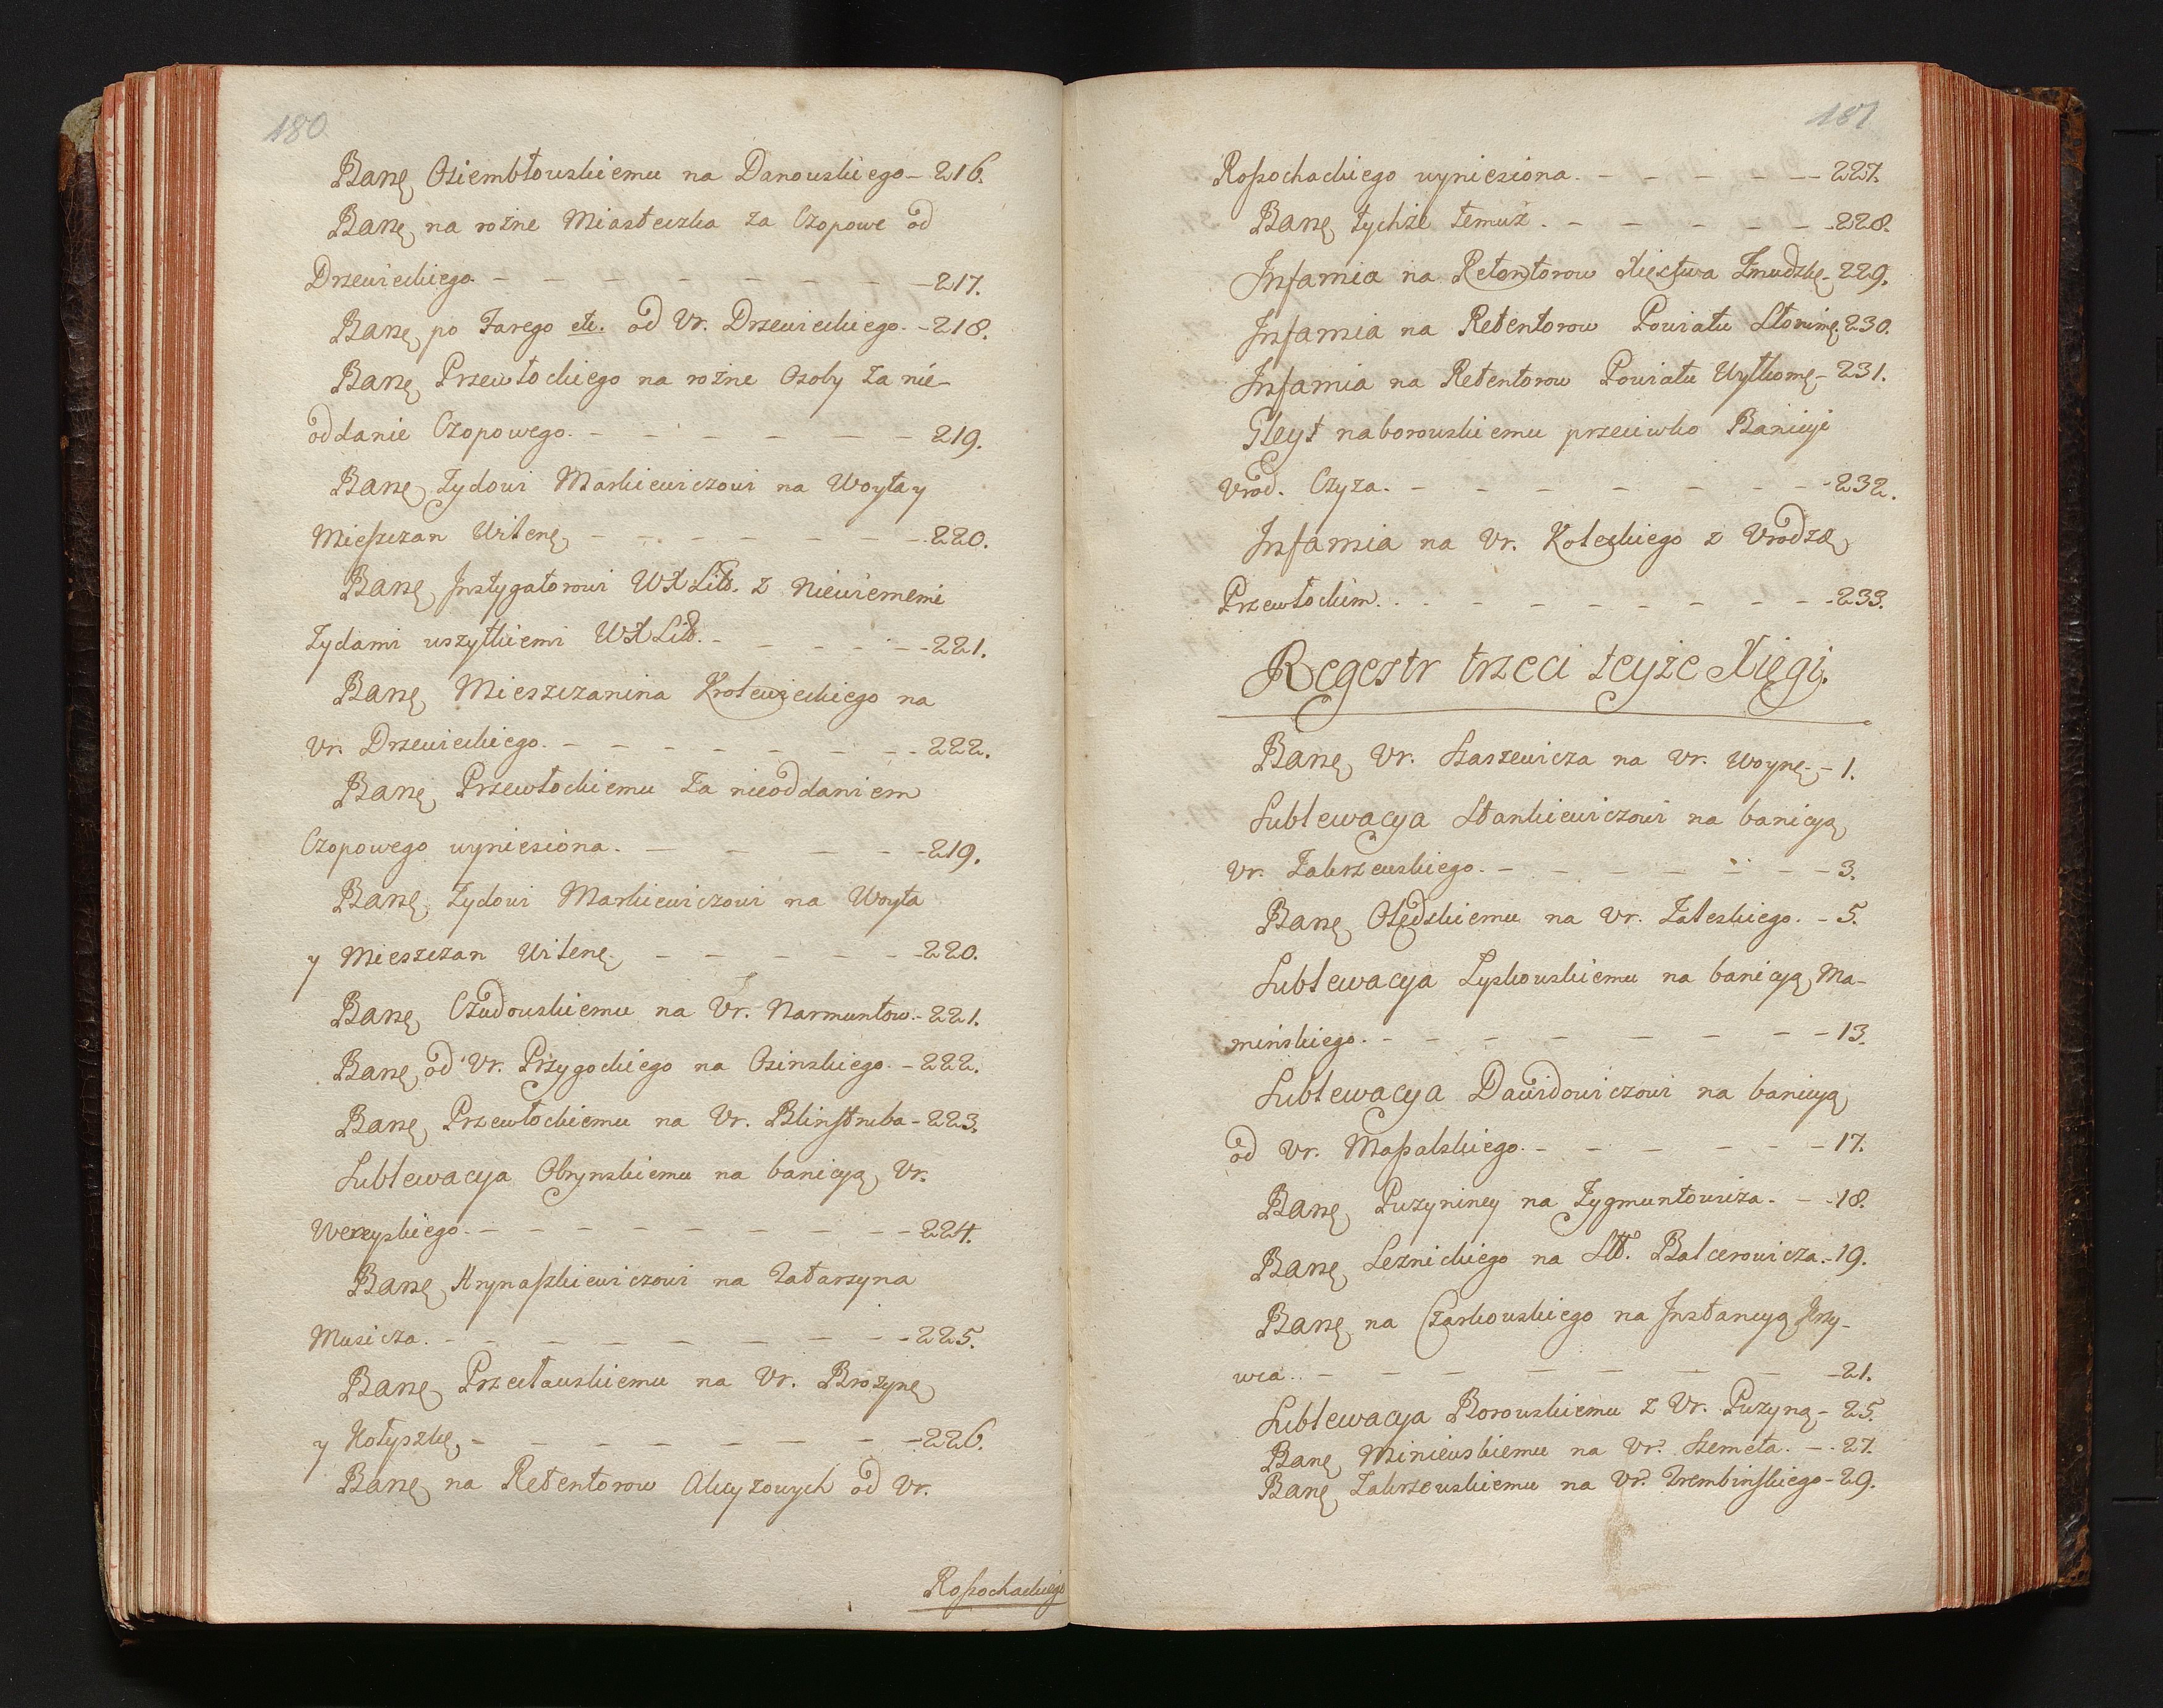 180
Banę Osiembłouskiemu na Danouskiego - 216.
Banę na rożne Miasteczka za Czopowe od
Drzewieckiego. - - - - - - - - 217.
Banę po Jarego etc. od Vr. Drzewieckiego. - 218.
Banę Przewłockiego na rożne Osoby za nie-
oddanie Czopowego. - - - - - - 219.
Banę Zydowi Markiewiczowi na Woyta y
Mieszczan Witenę - - - - - - - 220.
Banę Instygatorowi WXLitt. z Niewiernemi
Zydami wszytkiemi WXLitt. - - - - - 221.
Banę Mieszczanina Krolewieckiego na
Vr. Drzewieckiego. - - - - - - - 222.
Banę Przewłockiemu za nieoddaniem
Czopowego wyniesiona. - - - - - 219.
Banę Zydowi Markiewiczowi na Woyta
y Mieszczan Witenę - - - - - - 220.
Banę Czudouskiemu na Vr. Narmuntow. - 221.
Banę od Vr. Przygockiego na Osinskiego. - 222.
Banę Przewłockiemu na Vr. Blinstruba - 223.
Sublewacya Obrynskiemu na banicyą Vr.
Wereyskiego. - - - - - - - - 224.
Banę Hrynaszkiewiczowi na Tatarzyna
Musicza. - - - - - - - - - 225.
Banę Przecłauskiemu na Vr. Brozynę
y Kotyszkę, - - - - - - - - 226.
Banę na Retentorow Akcyzowych od Vr.
Rossochackiego
181
Rossochackiego wyniesiona. - - - - - 227.
Banę tychże temuż. - - - - - - 228.
Infamia na Retentorow Xięstwa Zmudzkę - 229.
Infamia na Retentorow Powiatu Słonimę. 230.
Infamia na Retentorow Powiatu Wyłkomę - 231.
Gleyt naborouskiemu przeciwko Banicyi
Vrod. Czyza. - - - - - - - - 232.
Infamia na Vr. Koteckiego z Vrodzę
Przewłockim. - - - - - - - - 233.
Regestr trzeci teyże Xięgi.
Banę Vr. Staszewicza na Vr. Woynę - 1.
Sublewacya Stankiewiczowi na banicyą
Vr. Zakrzewskiego. - - - - - - - 3.
Banę Olędskiemu na Vr. Zaleskiego. - 5.
Sublewacya Lyskouskiemu na banicyą Ma-
mińskiego. - - - - - - - - 13.
Sublewacya Dawidowiczowi na banicyą
od Vr. Massalskiego. - - - - - - 17.
Banę Puzyniney na Zygmuntowicza. - - 18.
Banę Leznickiego na Stt. Balcerowicza. - 19.
Banę na Czarkouskiego na Instancyą Krzy-
wca. - - - - - - - - - 21.
Sublewacya Borouskiemu z Vr. Puzyną - 25.
Banę Miniewskiemu na Vr. Szemeta. - - 27.
Banę Zakrzewskiemu na Vr. Trembinskiego - 29.